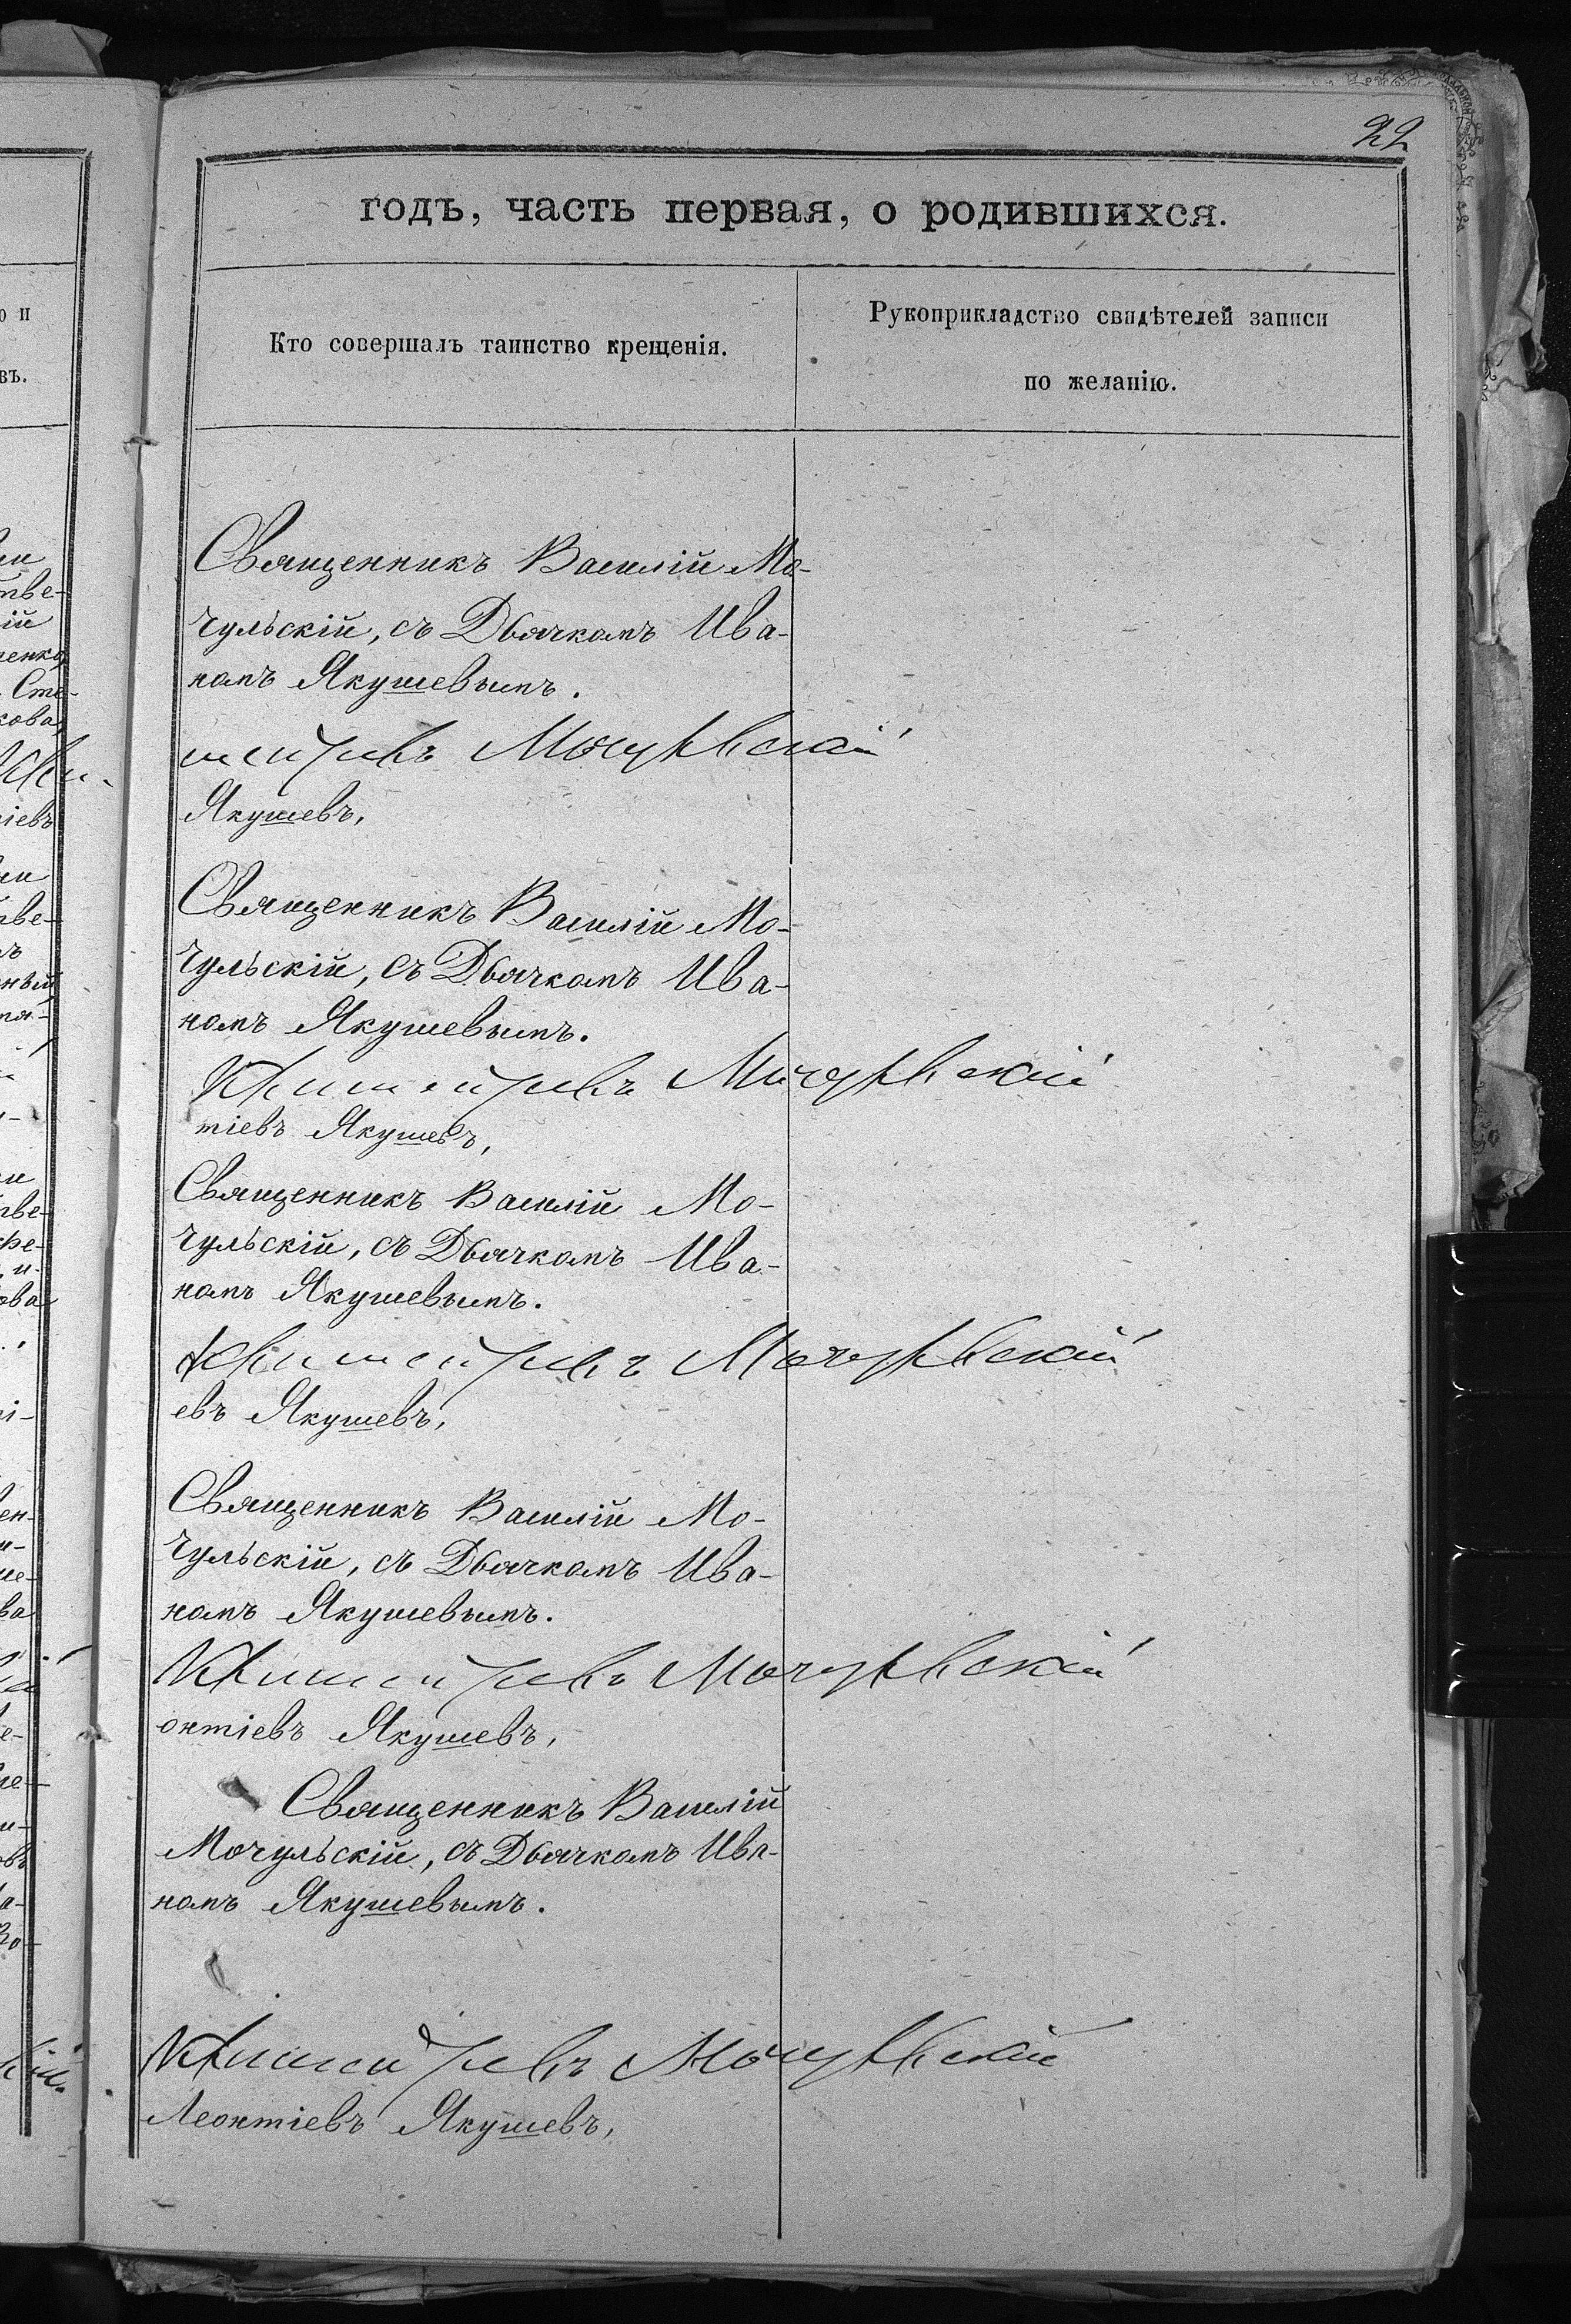 22
годъ, часть первая, о родившихся.
Кто совершалъ таинство крещенія.
Рукоприкладство свидѣтелей записи
по желанію.
Священникъ Василій Мо-
чульскій, съ Дьячкомъ Ива-
номъ Якушевымъ.
Мочульскій
Якушевъ,
Священникъ Василій Мо-
чульскій, съ Дьячкомъ Ива-
номъ Якушевымъ.
Мочульскій
тіевъ Якушевъ,
Священникъ Василій Мо-
чульскій, съ Дьячкомъ Ива-
номъ Якушевымъ.
Мочульскій
евъ Якушевъ,
Священникъ Василій Мо-
чульскій, съ Дьячкомъ Ива-
номъ Якушевымъ.
Мочульскій
онтіевъ Якушевъ,
Священникъ Василій
Мочульскій, съ Дьячкомъ Ива-
номъ Якушевымъ.
Мочульскій
Леонтіевъ Якушевъ,